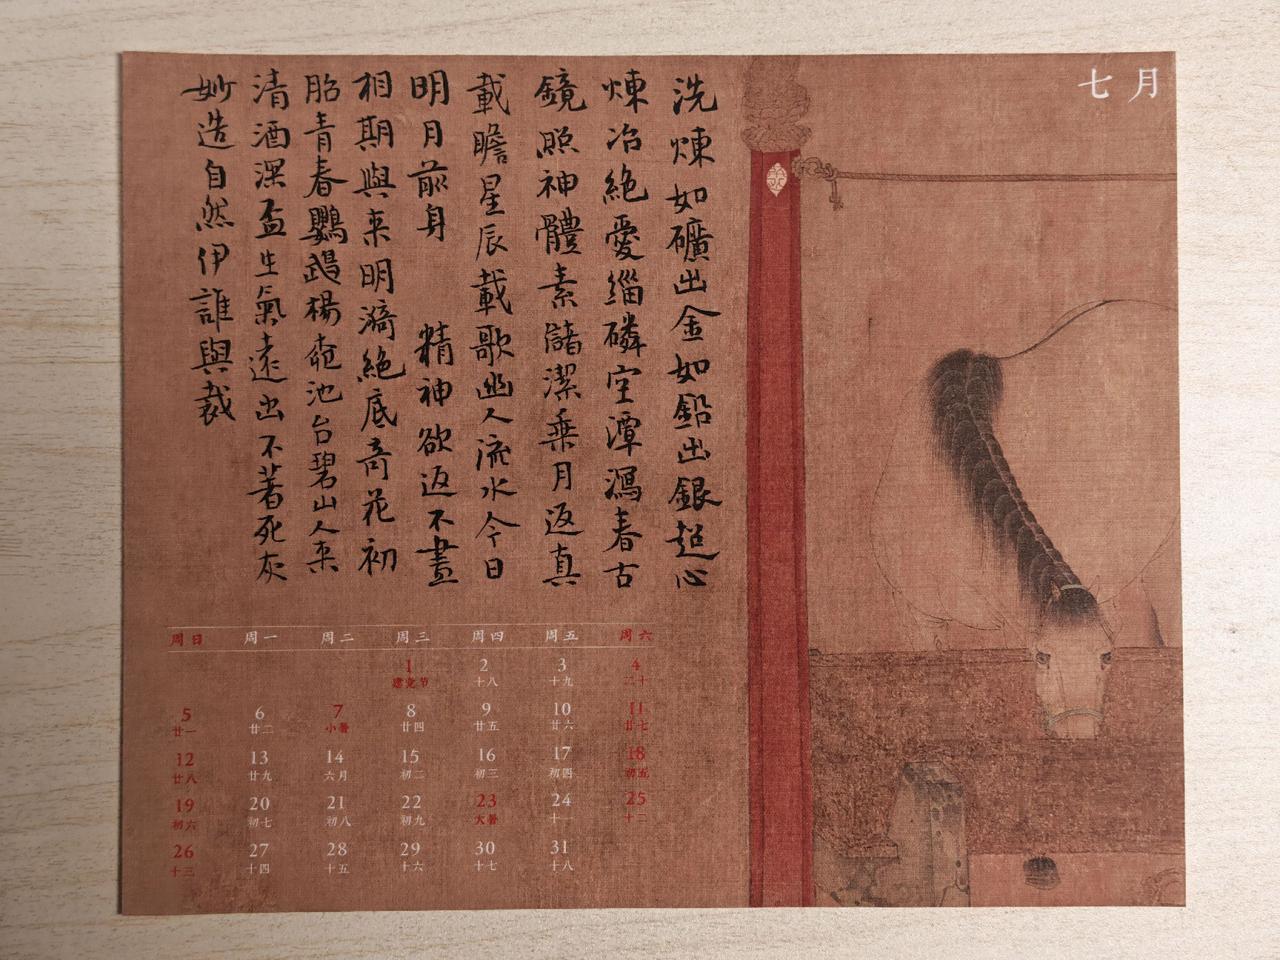 七月
洗煉如礦出金如鉛出銀超心
煉冶絕愛緇磷空潭瀉春古
鏡照神體素儲潔乘月返真
載瞻星辰載歌幽人流水今日
明月前身 精神欲返不盡
相期與来明漪絕底奇花初
胎青春鸚鵡楊柳池台碧山人来
清酒深盃生氣遠出不著死灰
妙造自然伊誰與裁
周日 周一 周二 周三 周四 周五 周六
1 2 3 4
建党节 十八 十九 二十
5 6 7 8 9 10 11
廿一 廿二 小暑 廿四 廿五 廿六 廿七
12 13 14 15 16 17 18
廿八 廿九 六月 初二 初三 初四 初五
19 20 21 22 23 24 25
初六 初七 初八 初九 大暑 十一 十二
26 27 28 29 30 31
十三 十四 十五 十六 十七 十八